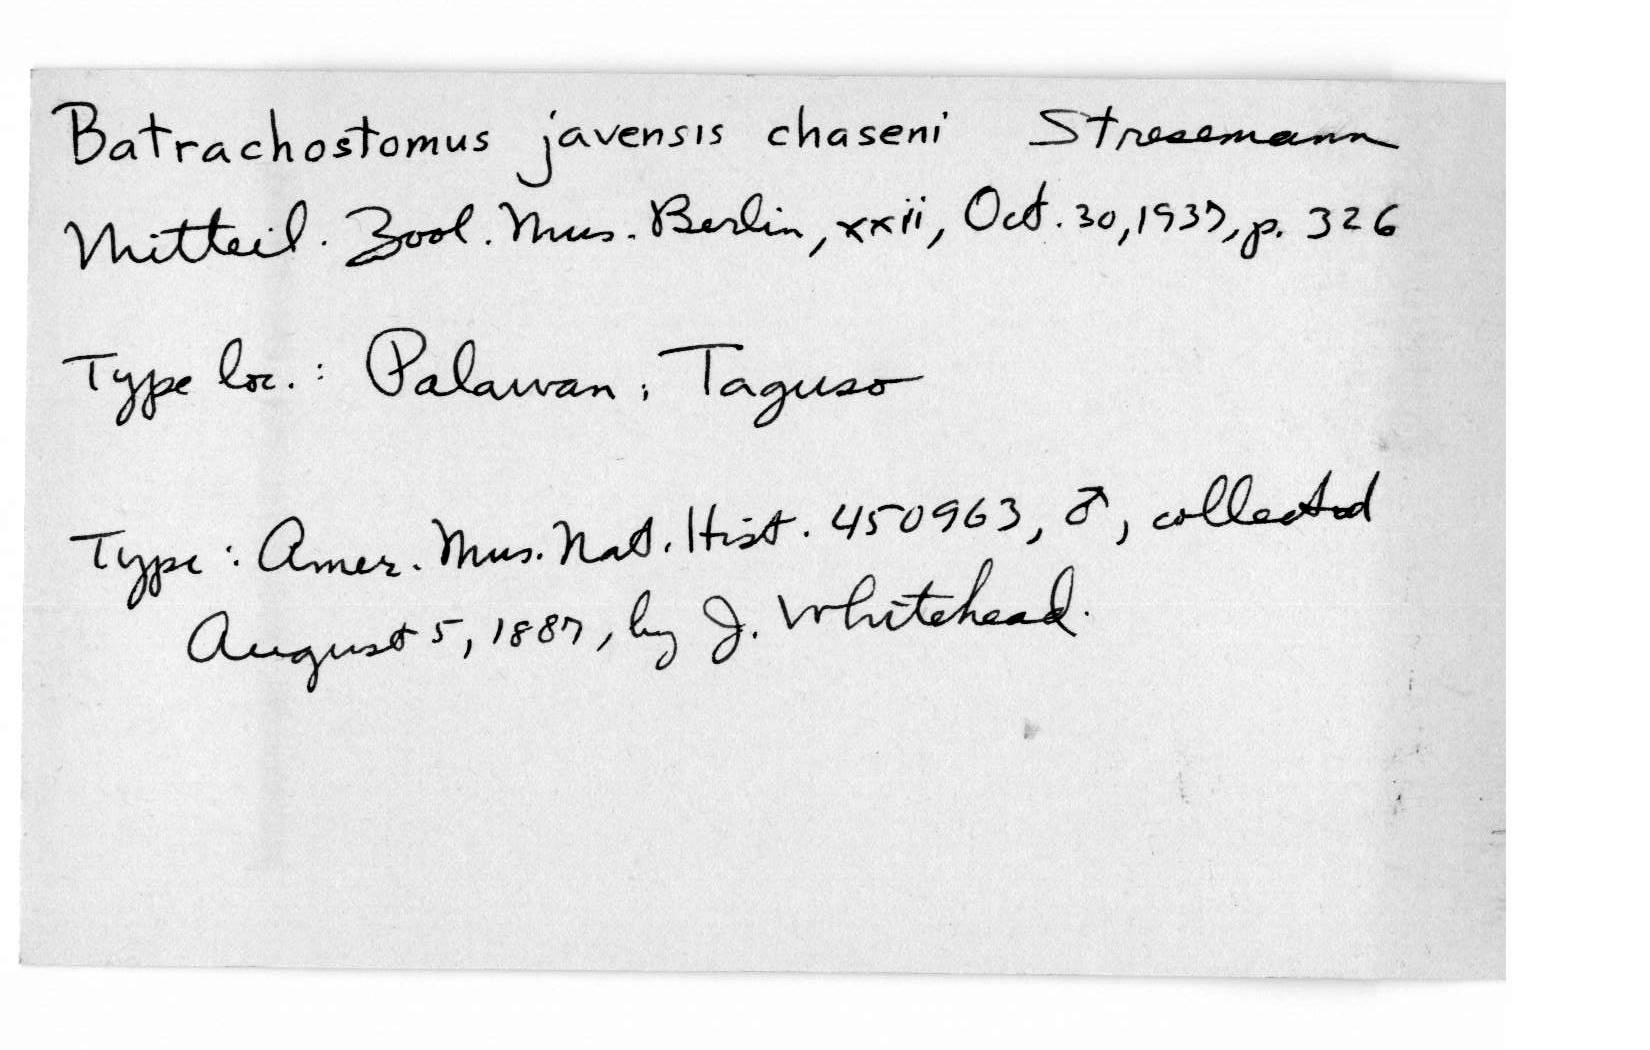 Batrachostomus javensis chaseni Stresemann
Mitteil. Zool. Mus. Berlin, xxii, Oct. 30, 1937, p. 326
Type loc.: Palawan; Taguso
Type: Amer. Mus. Nat. Hist. 450963, ♂, collected
August 5, 1887, by J. Whitehead.